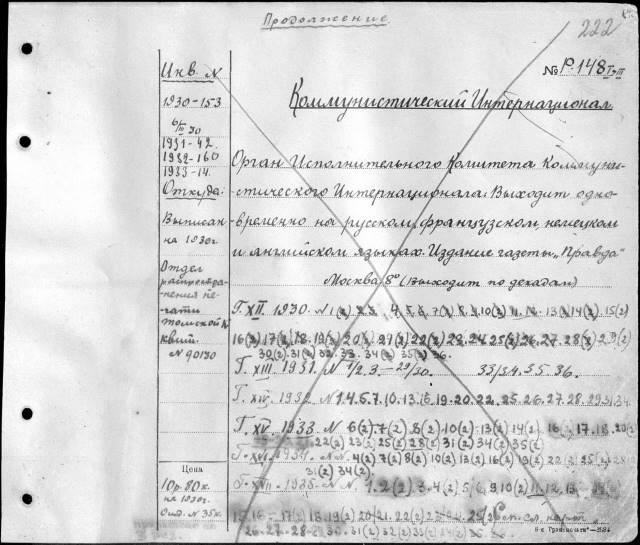 Продолжение
222
№ Р.148 I-III
Инв. №
1930-153
6/III 30
1931-42.
1932-160
1933-14.
Откуда:
Выписан
на 1930г.
Отдел
распростра-
нения пе-
чати
Томской К
№ 90130
Цена
10р. 80к.
на 1930г.
Отд. № 35к.
Коммунистический Интернационал.
Орган Исполнительного Комитета Коммуни-
-стического Интернационала. Выходит одно-
-временно на русском, французском, немецком
и английском языках. Издание газеты „Правда"
Москва 8° (Выходит по декадам)
Г. XII. 1930. №1(2) 2.3. 4. 5. 6. 7(2) 8(2) 9. 10(2) 11. 12. 13(2) 14(2). 15(2)
16(2) 17(2) 18. 19(2) 20(2). 21(2) 22(2) 23. 24. 25(2) 26. 27. 28(2) 29(2)
30(2). 31(2) 32. 33. 34(2) 35(2) 36.
Г. XIII. 1931. № 1/2. 3. — 29/30. 33/34. 35. 36.
Г. XIV. 1932 № 1. 4. 5. 7. 10. 13. 16. 19. 20. 22. 25. 26. 27. 28. 29. 31. 34.
Г. XV. 1933. № 6(2). 7(2) 8(2) 10(2). 13(2) 14(2). 16(2) 17. 18. 20(2)
22(2) 23(2) 25(2) 28(2) 31(2) 34(2) 35(2)
Г. XVI. 1934. №№ 4(2) 7(2) 8(2) 10(2) 13(2) 16(2) 19(2) 22(2) 25(2)
31(2) 34(2).
Г. XVII - 1935 - №№ 1. 2(2) 3. 4(2) 5. 6. 9. 10(2) 11. 12. 13.
15. 16 - 17(2) 18. 19(2) 20/21. 22(2) 23. 24. 25(2) см. сл. карт.
26. 27. 28-